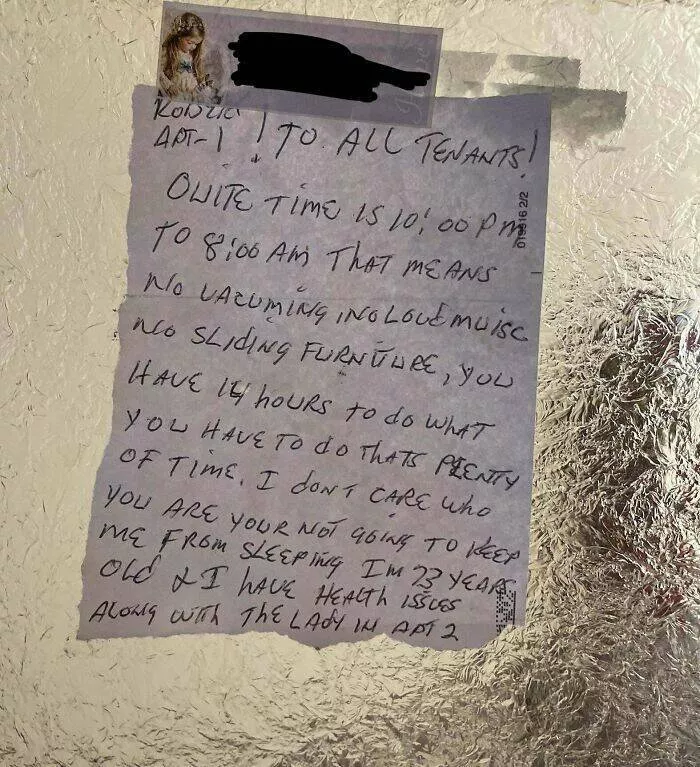 APT-1 ! TO ALL TENANTS!
QUITE TIME IS 10:00 PM
TO 8:00 AM THAT MEANS
NO VACUMING, NO LOUD MUISC
NO SLIDING FURNITURE, YOU
HAVE 14 HOURS TO do WHAT
YOU HAVE TO do THATS PLENTY
OF TIME. I DON'T CARE WHO
YOU ARE YOUR NOT GOING TO KEEP
ME FROM SLEEPING IM 73 YEARS
Old & I HAVE HEALTH ISSUES
ALONG WITH THE LADY IN APT 2
019916 2/2